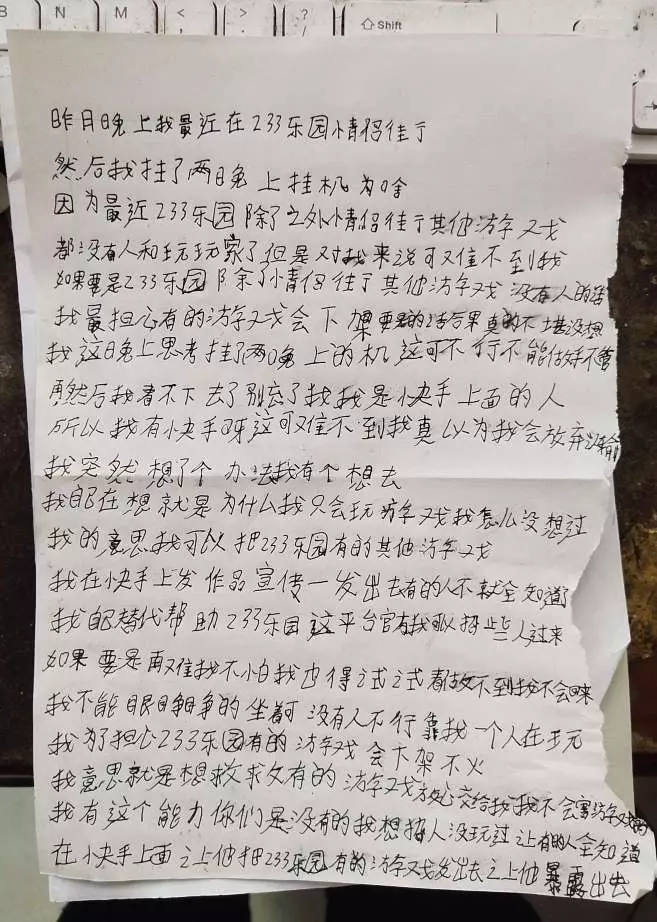 B N M < , > . ? / Shift
昨日晚上我最近在233乐园情侣往于
然后我挂了两晚上挂机为啥
因为最近233乐园除了之外情侣往于其他游字戏
都没有人和玩玩家了但是对我来说可难不到我
如果要是233乐园除了情侣往于其他游字戏没有人的话
我最担心有的游字戏会下架要是的话后果真的不堪没想
我这晚上思考挂了两晚上的机这可不行不能做手不管
再然后我看不下去了别忘了我我是小快手上面的人
所以我有小快手呀这可难不到我真以为我会放弃认输
我突然想了个办法我有个想去
我自己在想就是为什么我只会玩游字戏我怎么没想过
我的意思我可以把233乐园有的其他游字戏
我在小快手上发作品宣传一发出去有的人不就全知道了
我自己替代帮助233乐园这平台官有我可以招些人过来
如果要是再难我不小白我也得试试看做不到我不会回来
我不能眼睁睁的坐着可没有人不行靠我一个人在玩
我为了担心233乐园有的游戏会下架不火
我意思就是想救求文有的游字戏放心交给我我不会害游字戏
我有这个能力你们是没有的我想招人没玩过让有的人全知道
在小快手上面之上他把233乐园有的游字戏发出去之上他暴露出去